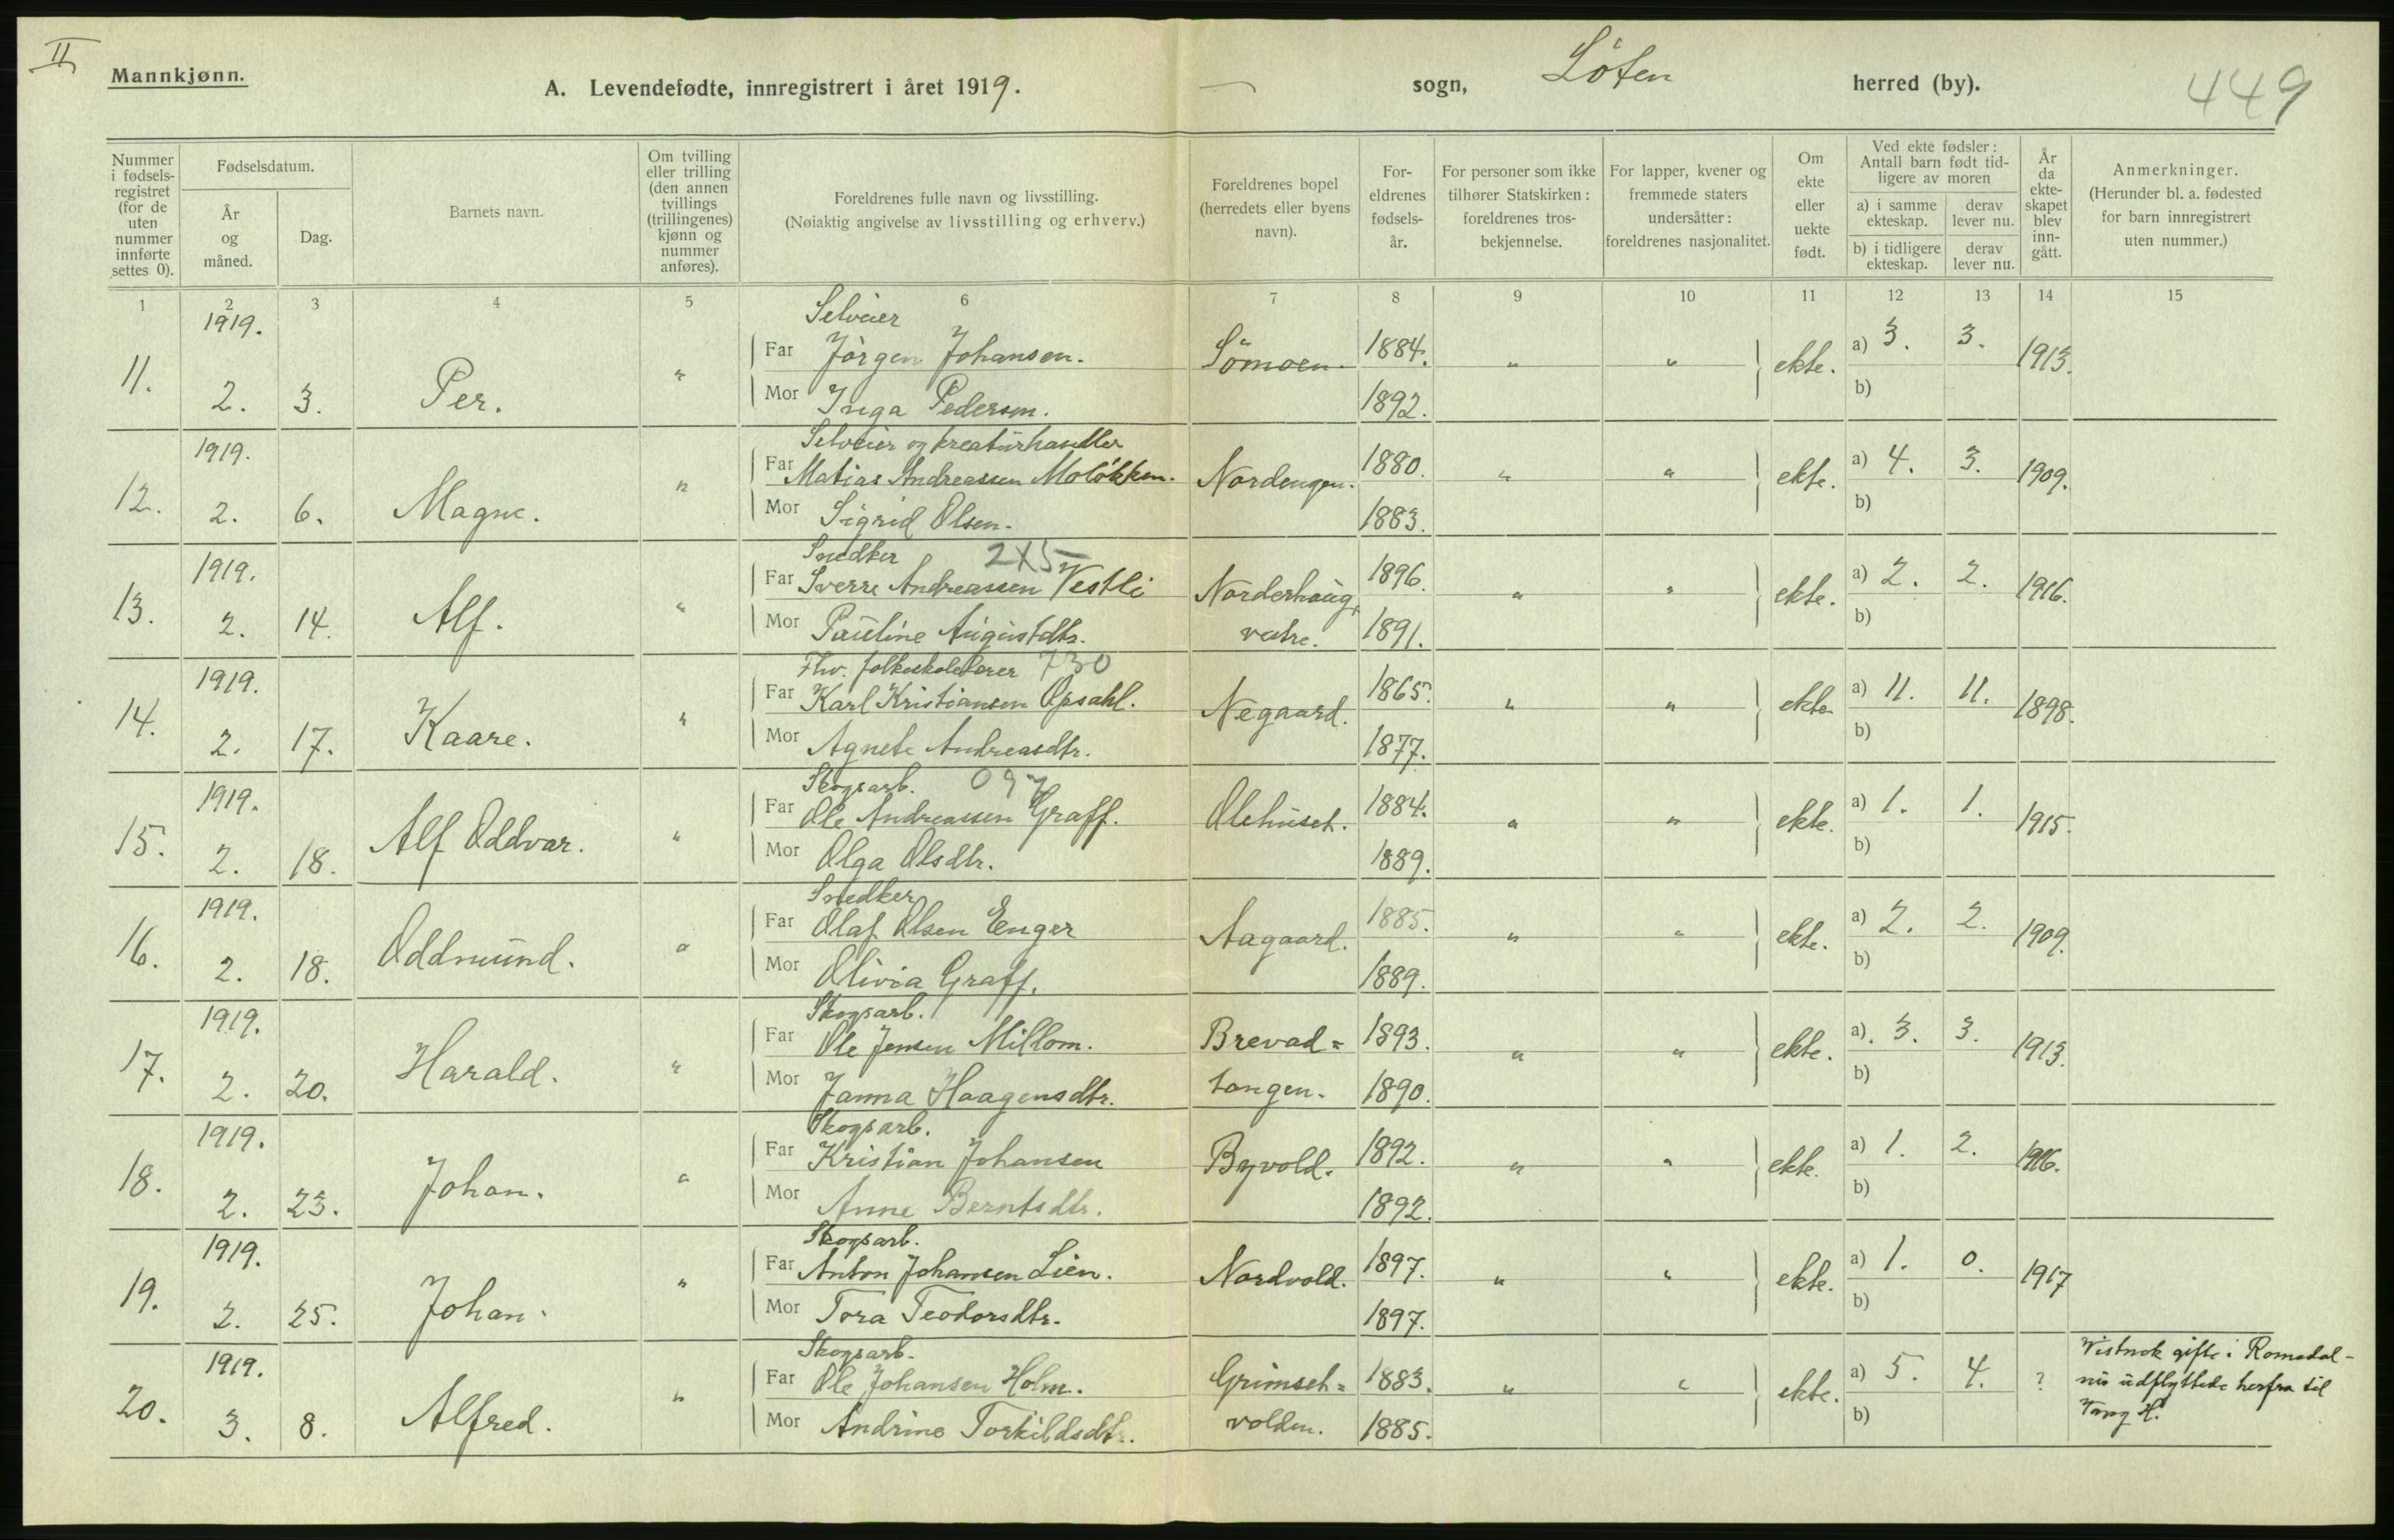 II
Mannkjønn.
A. Levendefødte, innregistrert i året 1919.
— sogn, Löten herred (by).
449
Nummer i fødsels-registret (for de uten nummer innførte settes 0).
Fødselsdatum.
År og måned.
Dag.
Barnets navn.
Om tvilling eller trilling (den annen tvillings (trillingenes) kjønn og nummer anføres).
Foreldrenes fulle navn og livsstilling.
(Nøiaktig angivelse av livsstilling og erhverv.)
Foreldrenes bopel (herredets eller byens navn).
For-eldrenes fødsels-år.
For personer som ikke tilhører Statskirken: foreldrenes tros-bekjennelse.
For lapper, kvener og fremmede staters undersåtter: foreldrenes nasjonalitet.
Om ekte eller uekte født.
Ved ekte fødsler: Antall barn født tid-ligere av moren
a) i samme ekteskap. derav lever nu.
b) i tidligere ekteskap. derav lever nu.
År da ekte-skapet blev inn-gått.
Anmerkninger.
(Herunder bl. a. fødested for barn innregistrert uten nummer.)
1 2 3 4 5 6 7 8 9 10 11 12 13 14 15
1919. Selveier
11. 2. 3. Per. " Far Jörgen Johansen. Sömoen. 1884. " " ekte. a) 3. 3. 1913.
Mor Inga Pedersen. 1892. b)
1919. Selveier og kreaturhandler
12. 2. 6. Magne. " Far Matias Andreassen Molökken. Nordengen. 1880. " " ekte. a) 4. 3. 1909.
Mor Sigrid Olsen. 1883. b)
1919. Snedker 2X5
13. 2. 14. Alf. " Far Sverre Andreassen Vestli Norderhaug, 1896. " " ekte. a) 2. 2. 1916.
Mor Pauline Augustdtr. vestre. 1891. b)
1919. Fhv. folkeskolelærer 730
14. 2. 17. Kaare. " Far Karl Kristiansen Opsahl. Negaard. 1865. " " ekte. a) 11. 11. 1898.
Mor Agnete Andreasdtr. 1877. b)
1919. Skogsarb. 097
15. 2. 18. Alf Oddvar. " Far Ole Andreassen Graff. Olehuset. 1884. " " ekte. a) 1. 1. 1915.
Mor Olga Olsdtr. 1889. b)
1919. Snedker
16. 2. 18. Oddmund. " Far Olaf Olsen Enger Aagaard. 1885. " " ekte. a) 2. 2. 1909.
Mor Olivia Graff. 1889. b)
1919. Skogsarb.
17. 2. 20. Harald. " Far Ole Jensen Millom. Brevad= 1893. " " ekte. a) 3. 3. 1913.
Mor Janna Haagensdtr. tangen. 1890. b)
1919. Skogsarb.
18. 2. 23. Johan. " Far Kristian Johansen Byvold. 1892. " " ekte. a) 1. 2. 1916.
Mor Anne Berntsdtr. 1892. b)
1919. Skogsarb.
19. 2. 25. Johan. " Far Anton Johansen Lien. Nordvold. 1897. " " ekte. a) 1. 0. 1917
Mor Tora Teodorsdtr. 1897. b)
1919. Skogsarb.
20. 3. 8. Alfred. " Far Ole Johansen Holm. Grimset= 1883. " " ekte. a) 5. 4. ?
Mor Andrine Torkildsdtr. volden. 1885. b)
Vistnok gifte i Romedal -
nu udflyttede herfra til
Vang H.